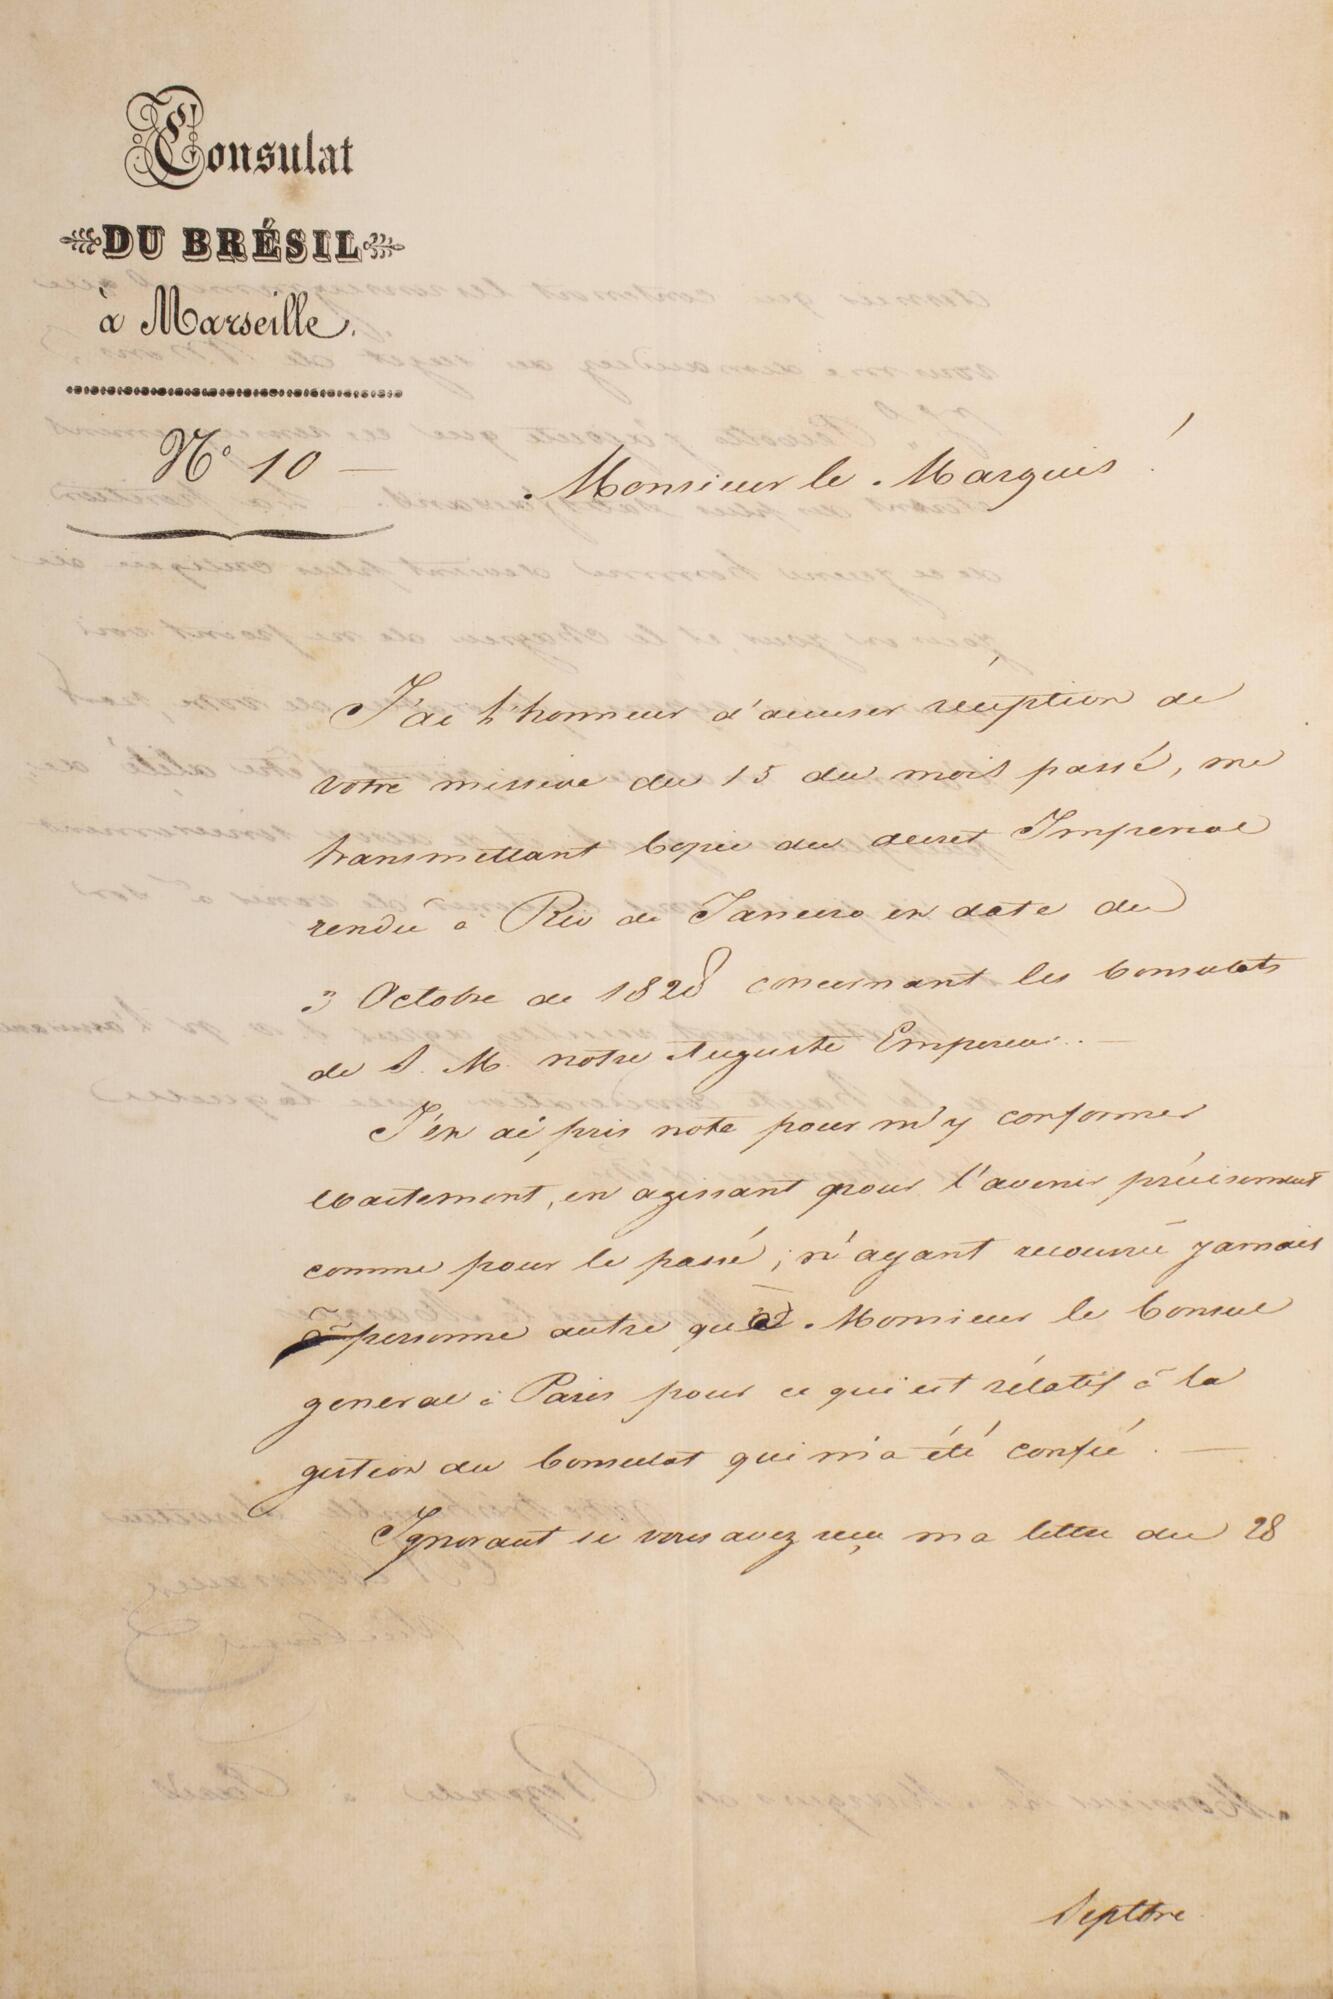 Consulat
DU BRÉSIL
à Marseille.
N° 10 —
Monsieur le Marquis !
J'ai l'honneur d'accuser réception de
votre missive du 15 du mois passé, me
transmettant Copie du decret Imperial
rendu à Rio de Janeiro en date du
3 Octobre de 1828 concernant les Consulats
de S. M. notre Auguste Empereur. —
J'en ai pris note pour m'y conformer
exactement, en agissant pour l'avenir précisement
comme pour le passé, n'ayant recourru jamais
à personne autre qu'à Monsieur le Consul
general à Paris pour ce qui est rélatif à la
gestion du Consulat qui m'a été confié. —
Ignorant si vous avez reçu ma lettre du 28
Septbre